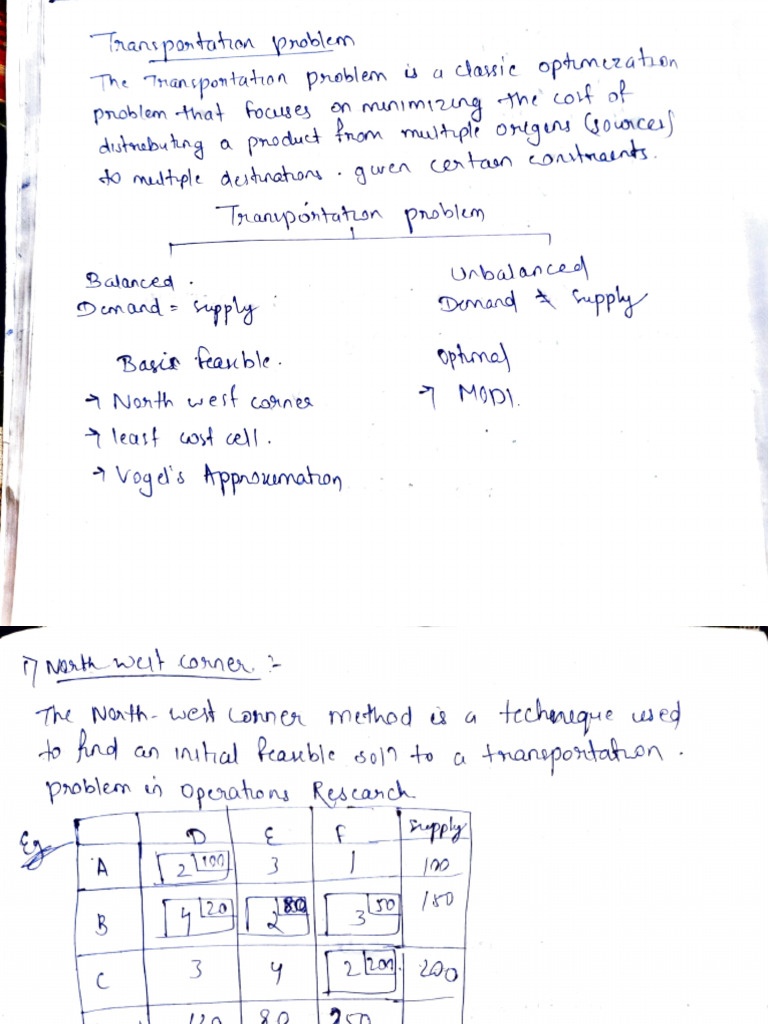 Transportation problem
The Transportation problem is a classic optimization
problem that focuses on minimizing the cost of
distributing a product from multiple origens (sources)
to multiple destinations. given certain constraints.
Transportation problem
Balanced. Unbalanced
Demand = supply Demand ≠ supply
Basic feasible. Optimal
→ North west corner → MODI.
→ least cost cell.
→ Vogel's Approximation
1) North west corner :-
The North-west corner method is a technique used
to find an initial feasible soln to a transportation.
problem in Operations Research.
Eg D E F supply
A 2 100 3 1 100
B 4 20 2 80 3 50 150
C 3 4 2 200 200
120 80 250